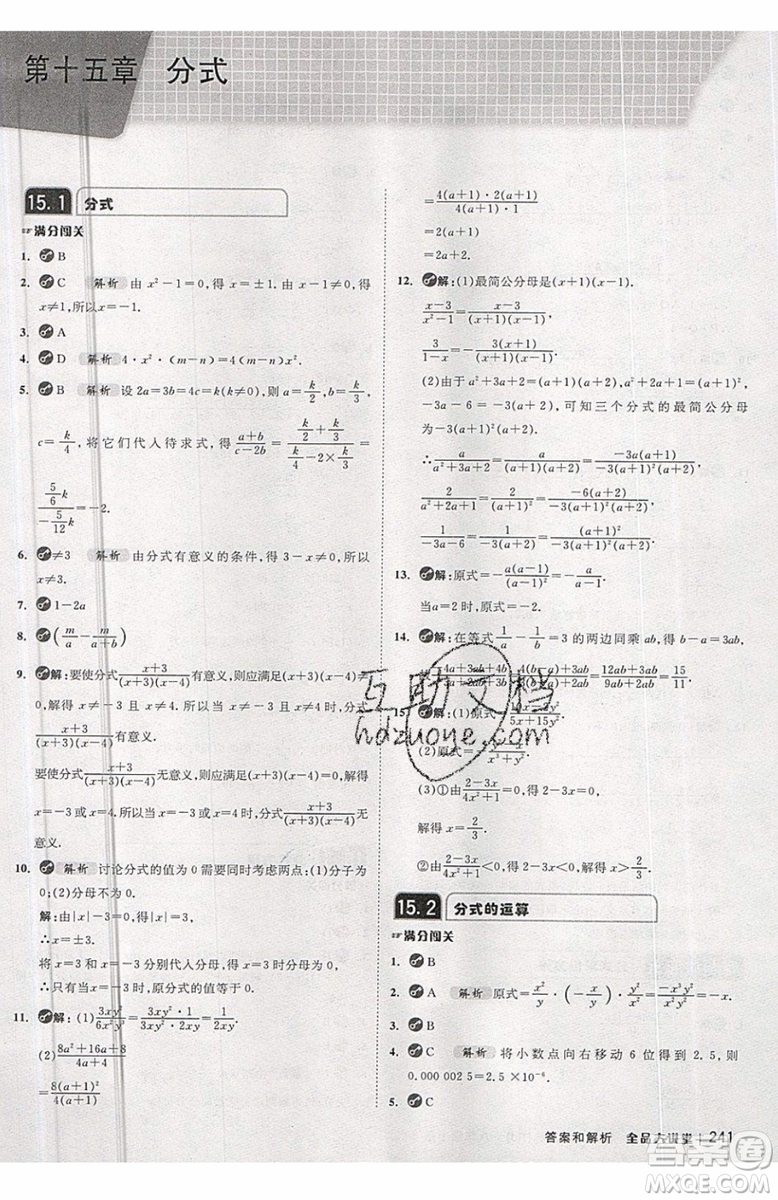 第十五章 分式
15.1 分式
满分闯关
1. B
2. C 解析 由 x²-1=0,得 x=±1. 由 x-1≠0,得
x≠1,所以 x=-1.
3. A
4. D 解析 4·x²·(m-n)=4(m-n)x².
5. B 解析 设 2a=3b=4c=k(k≠0),则 a=k/2,b=k/3,
c=k/4,将它们代入待求式,得 (a+b)/(c-2b)=(k/2+k/3)/(k/4-2×k/3)=
(5/6 k)/(-5/12 k)=-2.
6. ≠3 解析 由分式有意义的条件,得 3-x≠0,所以
x≠3.
7. 1-2a
8. (m/a - m/(a+b))
9. 解:要使分式(x+3)/((x+3)(x-4))有意义,则应满足(x+3)(x-
4)≠0,解得 x≠-3 且 x≠4,所以当 x≠-3 且 x≠4
时,分式(x+3)/((x+3)(x-4))有意义.
要使分式(x+3)/((x+3)(x-4))无意义,则应满足(x+3)(x-4)=0,解得
x=-3 或 x=4,所以当 x=-3 或 x=4 时,分式(x+3)/((x+3)(x-4))无
意义.
10. 解析 讨论分式的值为 0 需要同时考虑两点:(1)分子为
0;(2)分母不为 0.
解:由|x|-3=0,得|x|=3,
∴x=±3.
将 x=3 和 x=-3 分别代入分母,得
∴只有当 x=3 时,原分式的值等于 0.
11. 解:(1) 3xy²/6x²y³=(3xy²·1)/(3xy²·2xy)=1/2xy.
(2) (8a²+16a+8)/(4(a+1))
=8(a+1)²/(4(a+1))
=(4(a+1)·2(a+1))/(4(a+1)·1)
=2(a+1)
=2a+2.
12. 解:(1)最简公分母是(x+1)(x-1).
(x-3)/(x²-1)=(x-3)/((x+1)(x-1)),
3/(1-x)=-3(x+1)/((x+1)(x-1)).
(2)由于 a²+3a+2=(a+1)(a+2),a²+2a+1=(a+1)²,
-3a-6=-3(a+2),可知三个分式的最简公分母
为-3(a+1)²(a+2).
∴a/(a²+3a+2)=a/((a+1)(a+2))=-3a(a+1)/(-3(a+1)²(a+2)),
2/(a²+2a+1)=2/(a+1)²=-6(a+2)/(-3(a+1)²(a+2)),
1/(-3a-6)=1/(-3(a+2))=(a+1)²/(-3(a+1)²(a+2)).
13. 解:原式=-a(a-1)/(a-1)²=-a/(a-1).
当 a=2 时,原式=-2/(2-1)=-2.
14. 解:在等式 1/a-1/b=3 的两边同乘 ab,得 b-a=3ab,
(4(b-a)+3ab)/=12ab+3ab/9ab+2ab=15/11.
15. 解:(1)原式=
(2)原式=
(3)①由 (2-3x)/(4x²+1)=0,得 2-3x=0,
解得 x=2/3.
②由(2-3x)/(4x²+1)<0,得 2-3x<0,解得 x>2/3.
15.2 分式的运算
满分闯关
1. B
2. A 解析 原式=x²/y·(-y/x)·y²/x²=-x²y³/x³y².
3. B
4. C 解析 将小数点向右移动 6 位得到 2.5,则
0.000 002 5=2.5×10⁻⁶.
5. C
答案和解析 全品大讲堂 241
互助文档
hdzuone.com
答案圈
MXQE.COM